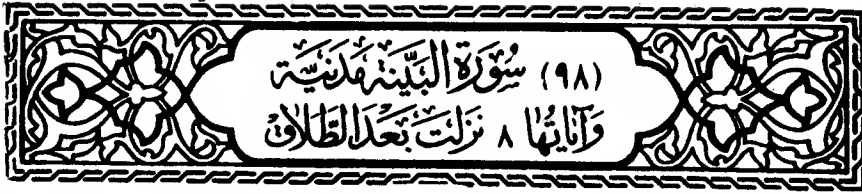 (٩٨) سُورَة البَيِّنَة مَدَنِيَّة
وَآيَاتُهَا ٨ نَزَلَتْ بَعْدَ الطَّلَاق